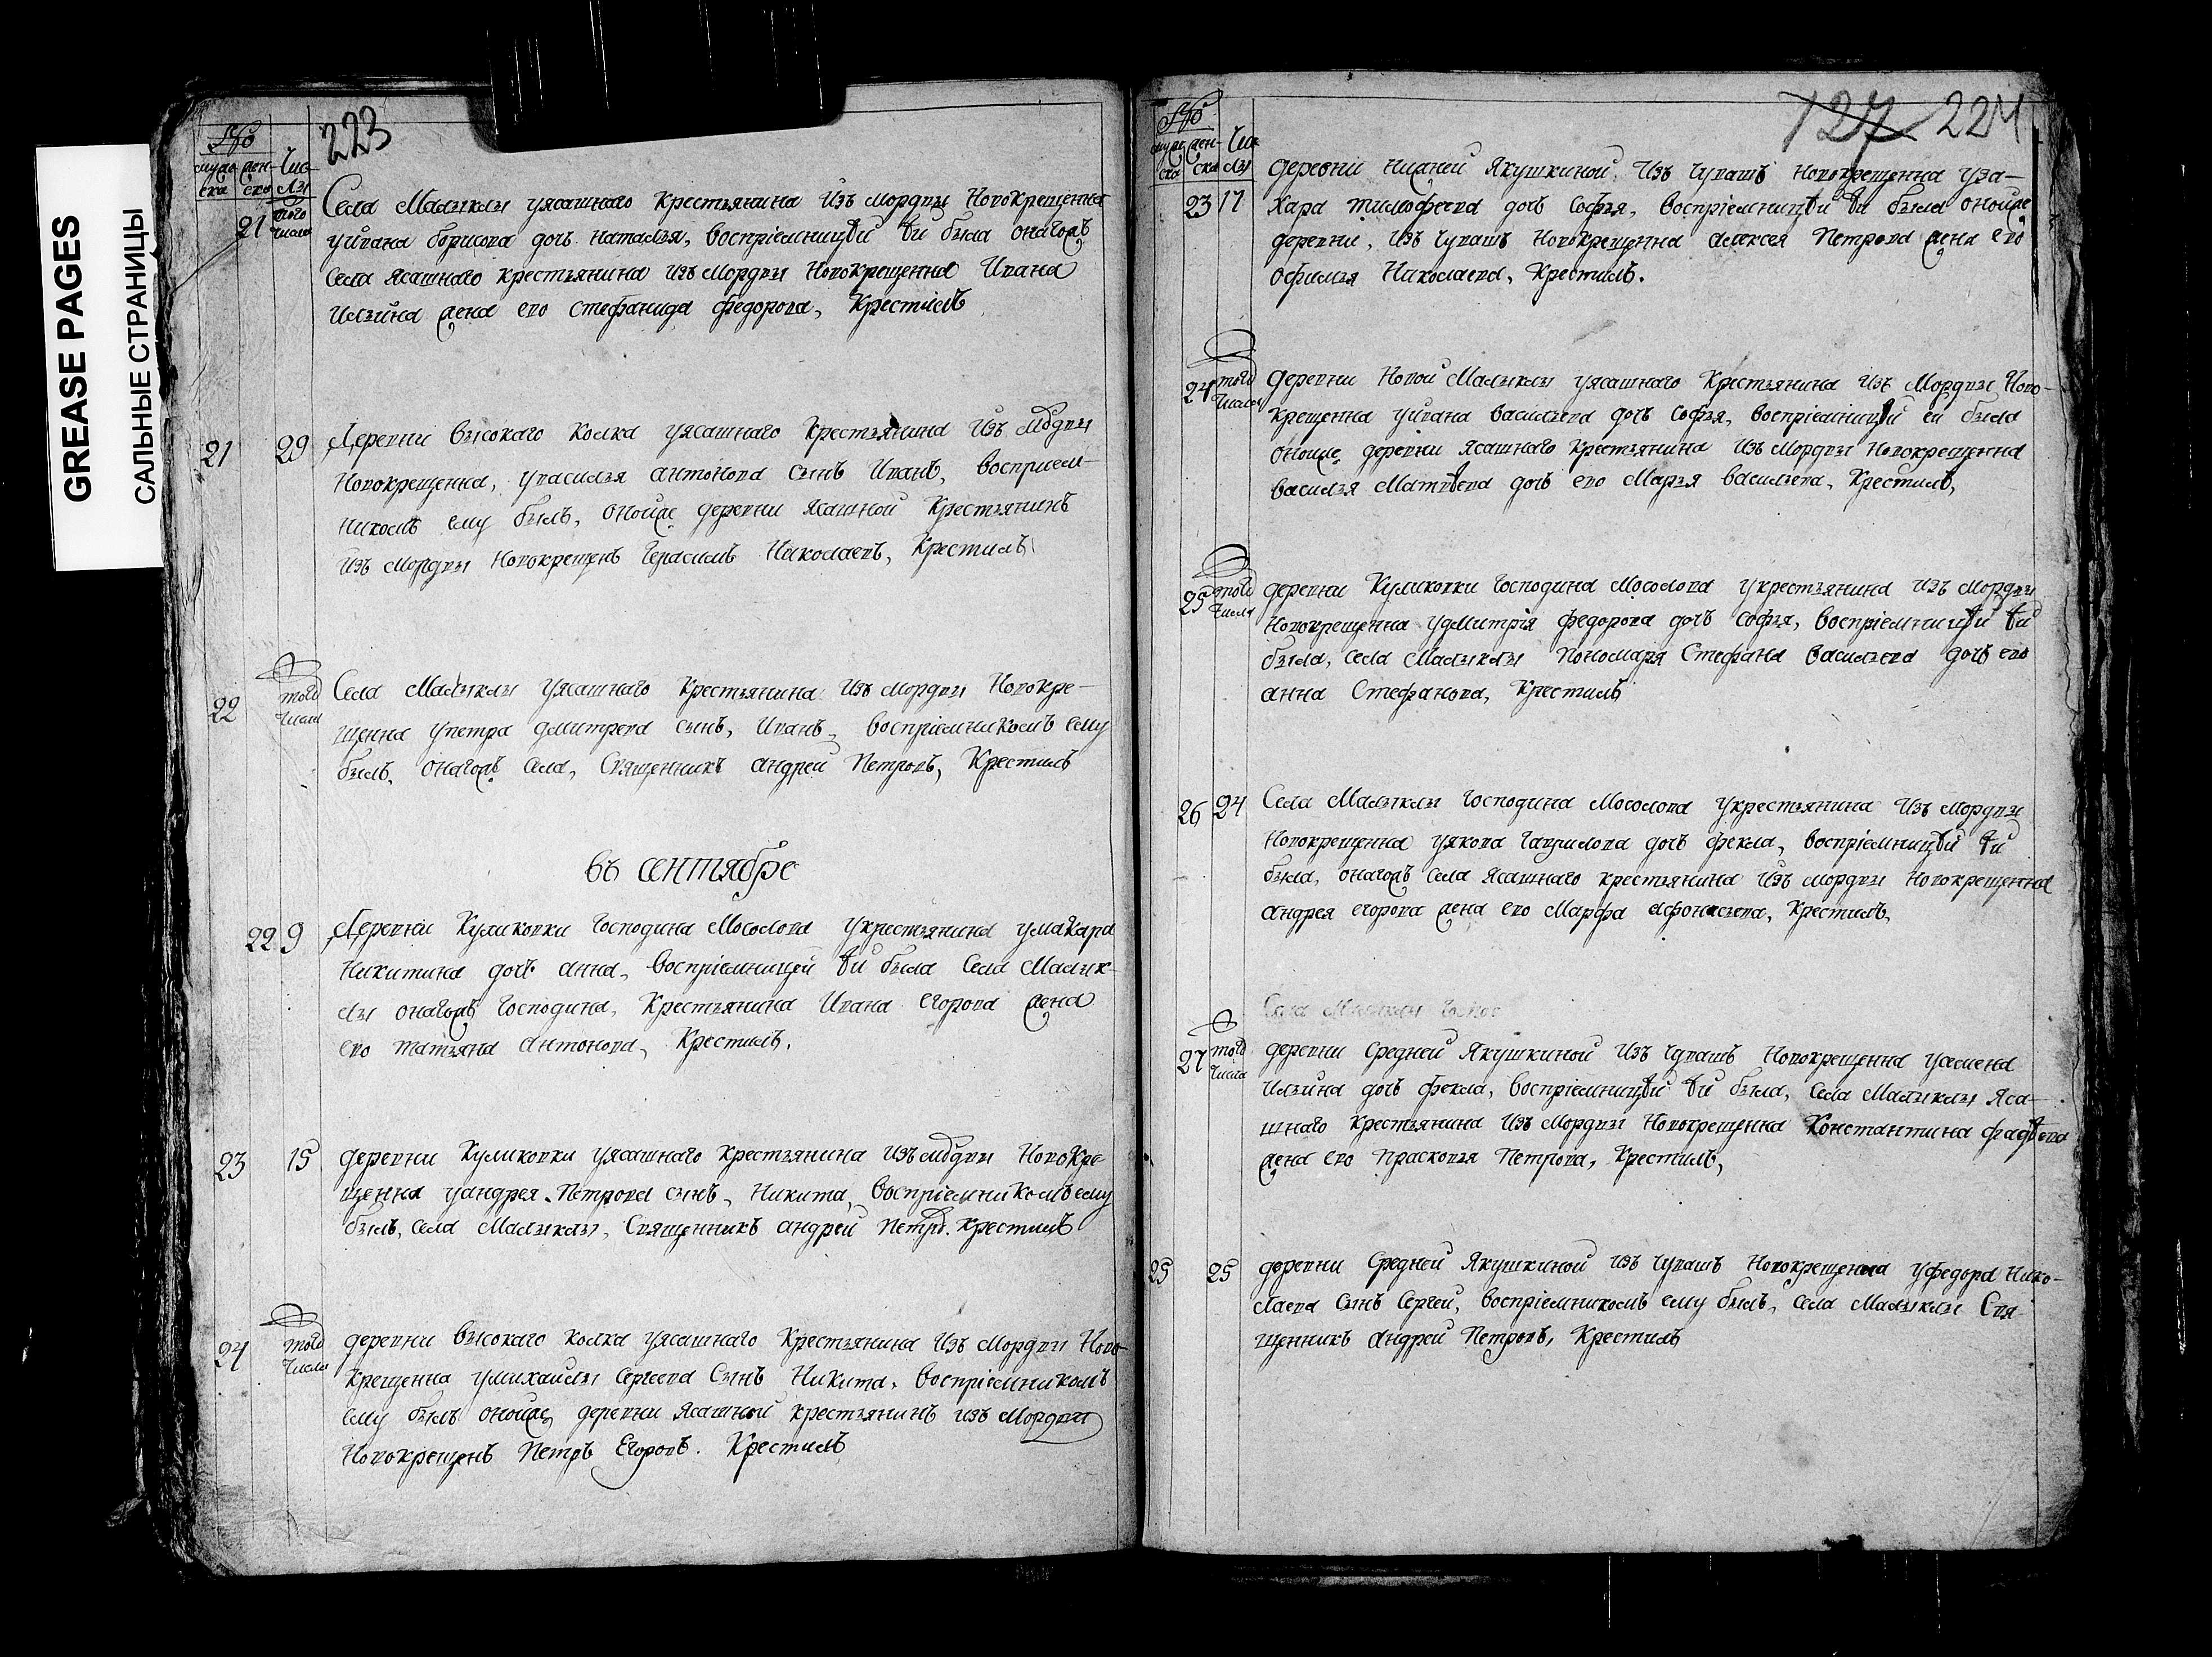 GREASE PAGES
САЛЬНЫЕ СТРАНИЦЫ
223
№
муже- жен- Чис-
ска ска лы
21 того числа Села Малыклы уясашнаго Крестьянина Изъ мордвы Новокрещенна
уивана борисова дочь наталья, воспріемницѣй ѣй была онагожъ
села ясашнаго крестьянина изъ мордвы Новокрещенна Ивана
Ильина жена ево стефанида федорова, Крестилъ
21 29 Деревни высокаго колка уясашнаго крестьянина Изъ мордвы
Новокрещенна, увасилья антонова сынъ Иванъ, восприем-
никомъ ему былъ, оноиже деревни ясашной Крестьянинъ
изъ мордвы Новокрещенъ Герасимъ Николаевъ, Крестилъ
22 того числа Села Малыклы уясашнаго Крестьянина Изъ мордвы Новокре-
щенна упетра дмитрева сынъ, Иванъ, воспріемникомъ ему
былъ, онагожъ села, Священникъ андреи Петровъ, Крестилъ
въ сентябре
22 9 Деревни Куликовки Господина Мосолова Укрестьянина умакара
Никитина дочь анна, воспріемницей ѣй была Села Малык-
лы онагожъ Господина, Крестьянина Ивана Егорова жена
ево татьяна антонова, Крестилъ.
23 15 деревни Куликовки уясашнаго крестьянина изъ мордвы Новокре
щенна уандрея Петрова сынъ, Никита, воспріемникомъ ему
былъ, села Малыклы, Священникъ андреи петро. крестилъ
24 того числа деревни высокаго колка уясашнаго Крестьянина Изъ Мордвы Ново-
крещенна умихаилы Сергеева Сынъ Никита, воспріемникомъ
ему былъ оноиже деревни ясашной крестьянинъ изъ мордвы
Новокрещенъ Петръ Егоровъ. Крестилъ
127 224
№
муже жен- Чис
ска ска лы
деревни нижней Якушкиной, Изъ Чувашъ Новокрещенна уза-
23 17 хара тимофеева дочь Софья, воспріемницѣй ѣй была оноиже
деревни, изъ Чувашъ Новокрещенна алексея Петрова жена ево
офимья Николаева, Крестилъ.
24 того числа деревни Новой Малыклы уясашнаго Крестьянина Изъ Мордвы Ново-
крещенна уивана васильева дочь Софья, воспріемницѣй ей была
оноиже деревни ясашнаго крестьянина изъ мордвы Новокрещенна
василья Матвѣева дочь ево Марья васильева, Крестилъ,
25 того числа деревни Куликовки Господина Мосолова укрестьянина из мордвы
Новокрещенна удмитрія федорова дочь Софья, воспріемницѣй ѣй
была, села Малыклы Пономаря Стефана васильева дочь ево
анна Стефанова, Крестилъ
26 24 Села Малыклы Господина Мосолова укрестьянина Изъ мордвы
Новокрещенна уякова Гаврилова дочь фекла, воспріемницѣй ѣй
была, онагожъ села ясашнаго крестьянина изъ мордвы новокрещенна
андрея егорова жена ево Марфа афонасьева, Крестилъ,
Села Малыклы
27 того числа деревни Средней Якушкиной Изъ Чувашъ Новокрещенна усемена
Ильина дочь фекла, воспріемницѣй ѣй была, села Малыклы яса-
шнаго крестьянина изъ мордвы новокрещенна Константина фадѣева
жена ево прасковья Петрова, Крестилъ,
25 25 деревни Средней Якушкиной изъ Чувашъ Новокрещенна уфедора Нико-
лаева Сынъ Сергеи, воспріемникомъ ему былъ, села Малыклы Свя
щенникъ андреи Петровъ, Крестилъ